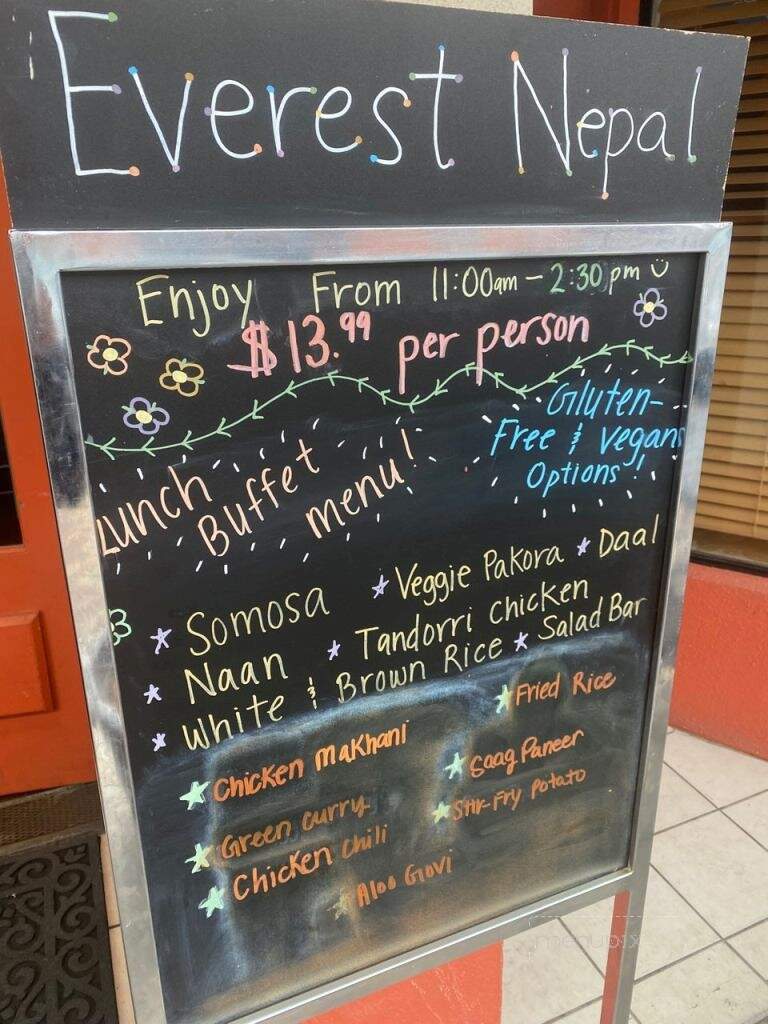 Everest Nepal
Enjoy From 11:00am - 2:30pm
$13.99 per person
Gluten-
Free & vegans
Options!
Lunch
Buffet
menu!
Somosa
Veggie Pakora
Daal
Naan
Tandorri chicken
White & Brown Rice
Salad Bar
Fried Rice
Chicken Makhani
Saag Paneer
Green curry
Stir-Fry potato
Chicken Chili
Aloo Govi